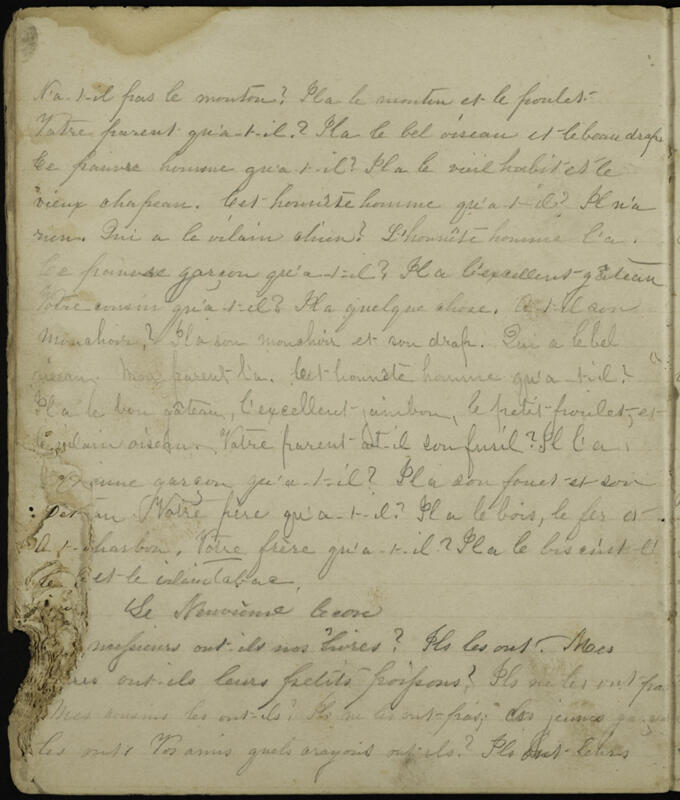 N'a-t-il pas le mouton? Il a le mouton et le poulet
Votre parent qu'a-t-il? Il a le bel oiseau et le beau drap
Ce pauvre homme qu'a-t-il? Il a le vieil habit et le
vieux chapeau. Cet honnête homme qu'a-t-il? Il n'a
rien. Qui a le vilain chien? L'honnête homme l'a.
Ce pauvre garçon qu'a-t-il? Il a l'excellent gâteau
Votre cousin qu'a-t-il? Il a quelque chose. A-t-il son
mouchoir? Il a son mouchoir et son drap. Qui a le bel
oiseau. Mon parent l'a. Cet honnête homme qu'a-t-il?
Il a le bon gâteau, l'excellent jambon, le petit poulet, et
le vilain oiseau. Votre parent a-t-il son fusil? Il l'a.
garçon qu'a-t-il? Il a son fouet et son
Notre père qu'a-t-il? Il a le bois, le fer et
charbon. Votre frère qu'a-t-il? Il a le biscuit
et le vilain tabac.
Le Neuvième lecon
messieurs ont-ils nos livres? Ils les ont. Mes
ont-ils leurs petits poissons? Ils ne les ont pas
Mes cousins les ont-ils? Ils ne les ont pas; jeunes
les ont. Vos amis quels crayons ont-ils? Ils ont leurs